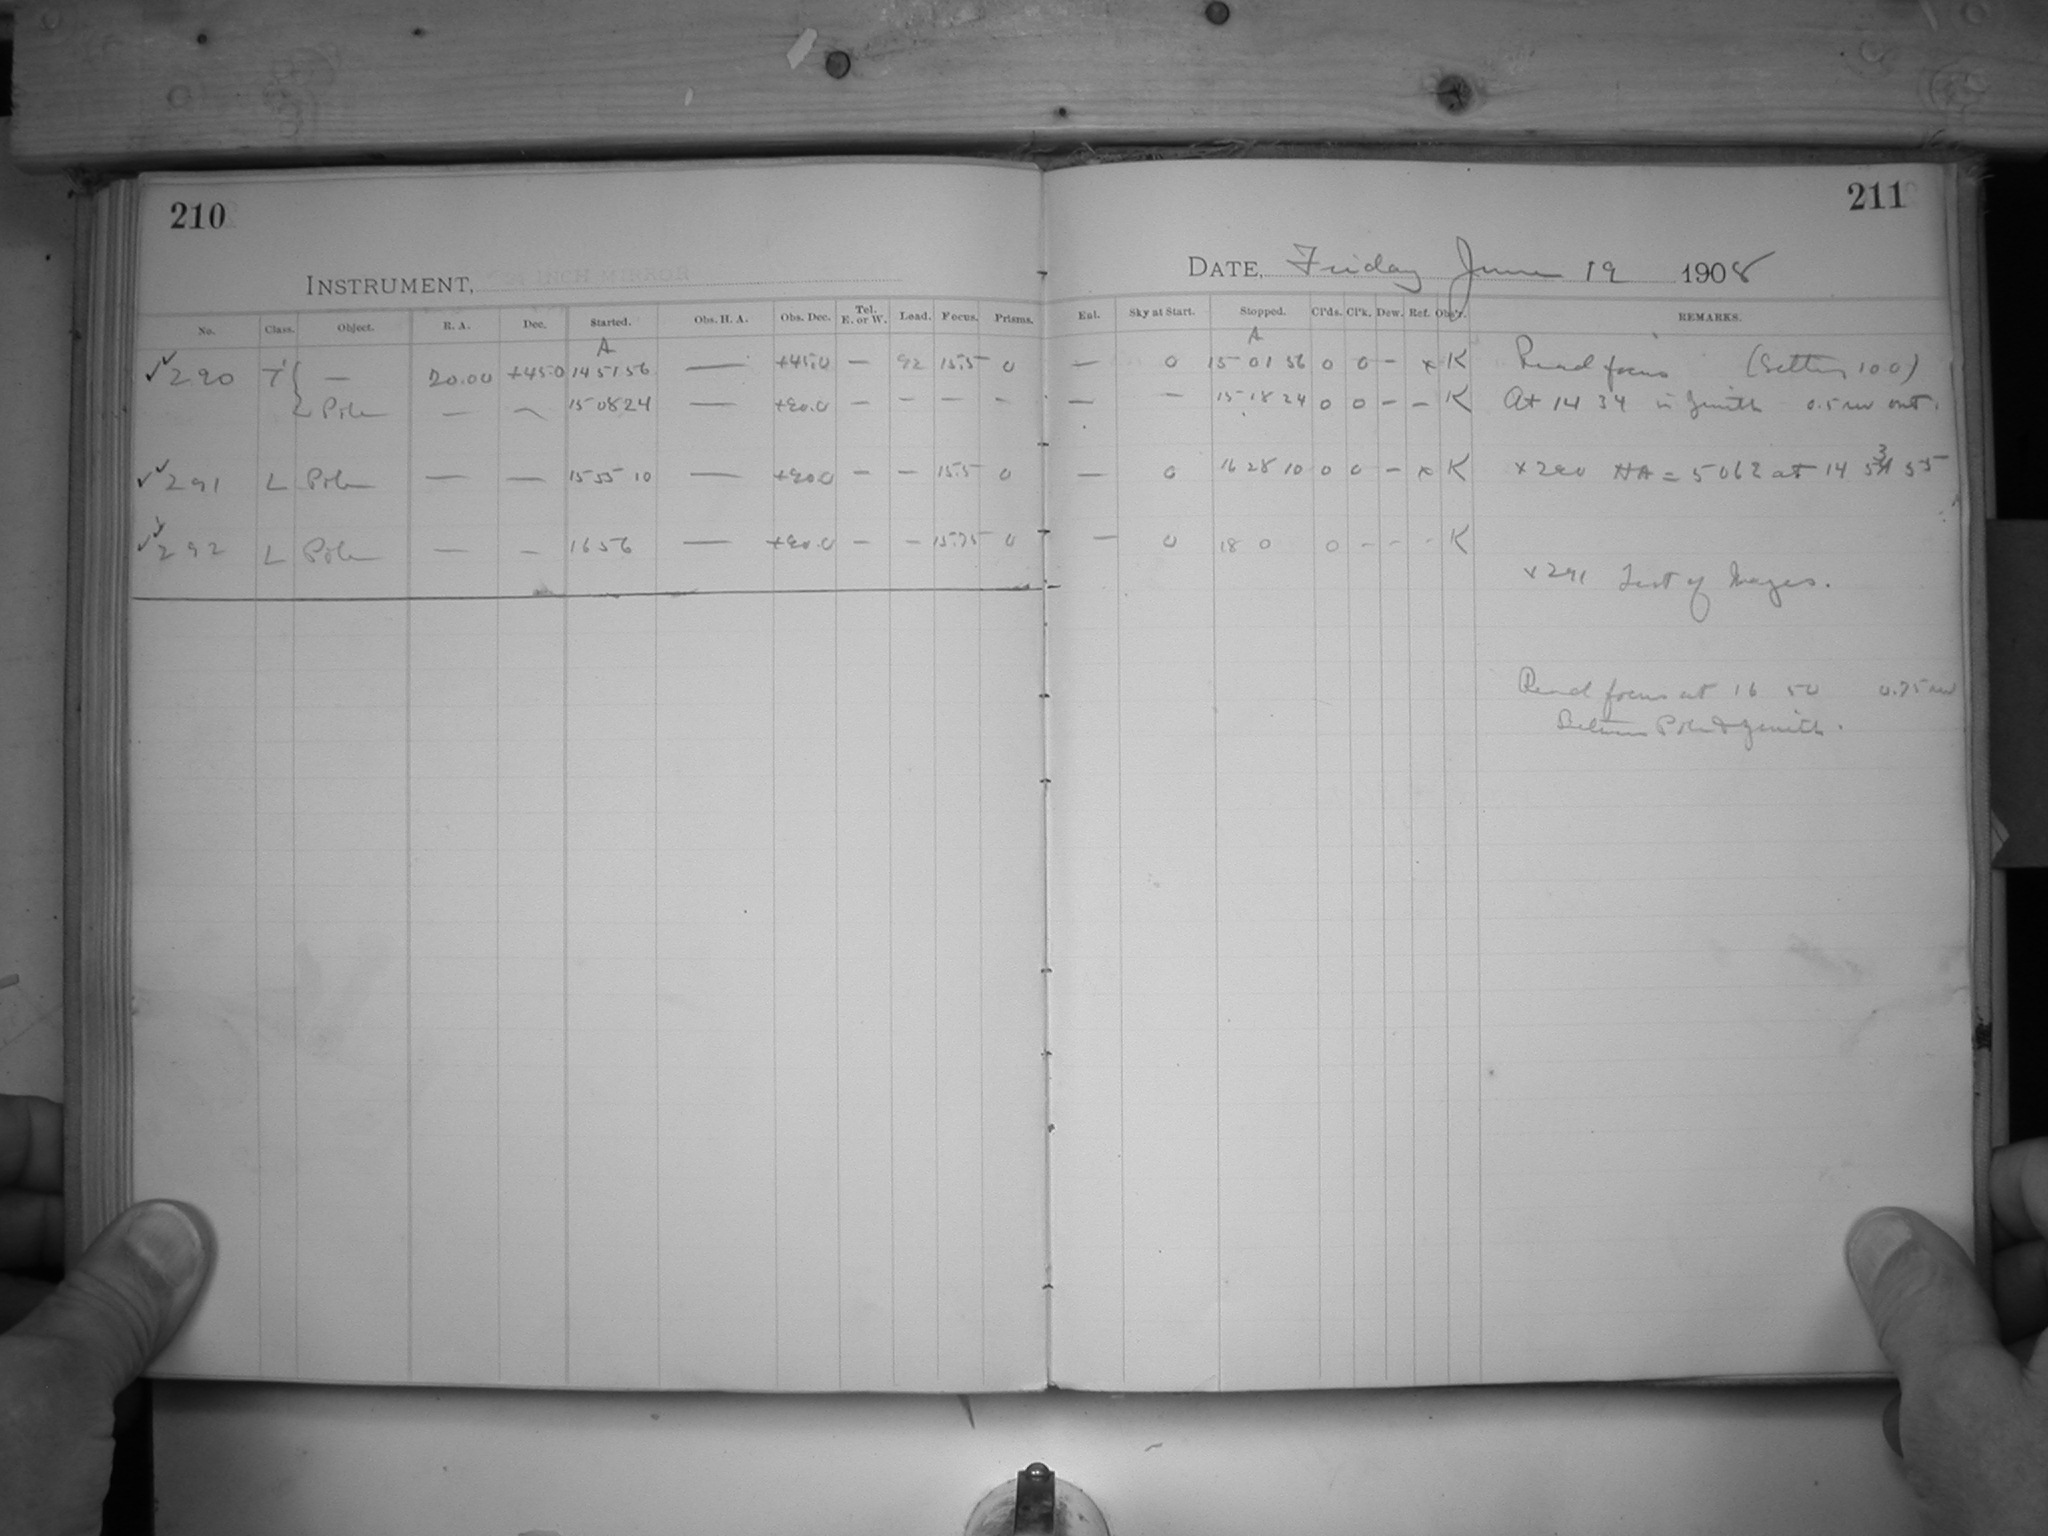 210
211
INSTRUMENT, 24 INCH MIRROR
DATE, Friday June 19 1908
No. Class. Object. R. A. Dec. Started. Obs. H. A. Obs. Dec. Tel. E. or W. Lead. Focus. Prisms. Eal. Sky at Start. Stopped. Cl'ds. Cl'k. Dew. Ref. Obs'r. REMARKS.
A A
290 T — 20.00 +45.0 14 51 56 — +45.0 — 92 15.5 0 — 0 15 01 56 0 0 - x K Read focus (Setting 100)
L Pole — — 15 08 24 — +90.0 — - - - — — 15 18 24 0 0 - - K At 14 34 in Zenith 0.5 rev out.
291 L Pole — — 15 55 10 — +90.0 — — 15.5 0 — 0 16 28 10 0 0 - x K x 290 HA = 5 06 2 at 14 53 55
292 L Pole — — 16 56 — +90.0 — — 15.75 0 — 0 18 0 0 - - - K
x 291 Test of Images.
Read focus at 16 50 0.75 rev
Between Pole & Zenith.